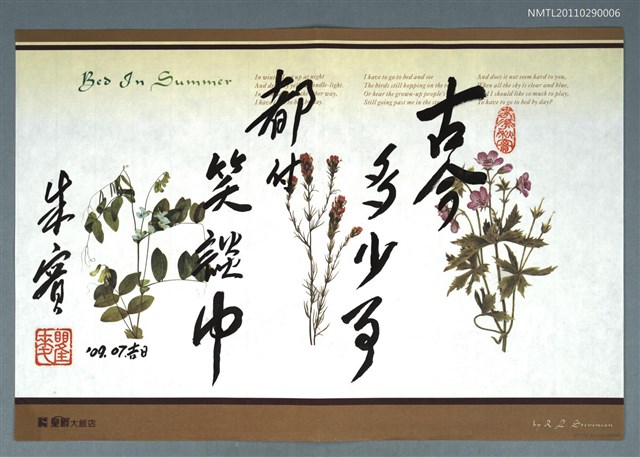 NMTL20110290006
Bed In Summer
I have to go to bed and see
The birds still hopping on the
Or hear the grown-up people's
Still going past me in the
And does it not seem hard to you,
When all the sky is clear and blue,
And I should like so much to play,
To have to go to bed by day?
古今
多少事
都付
笑談中
朱實
'09.07.吉日
皇爵大飯店
by R L Stevenson